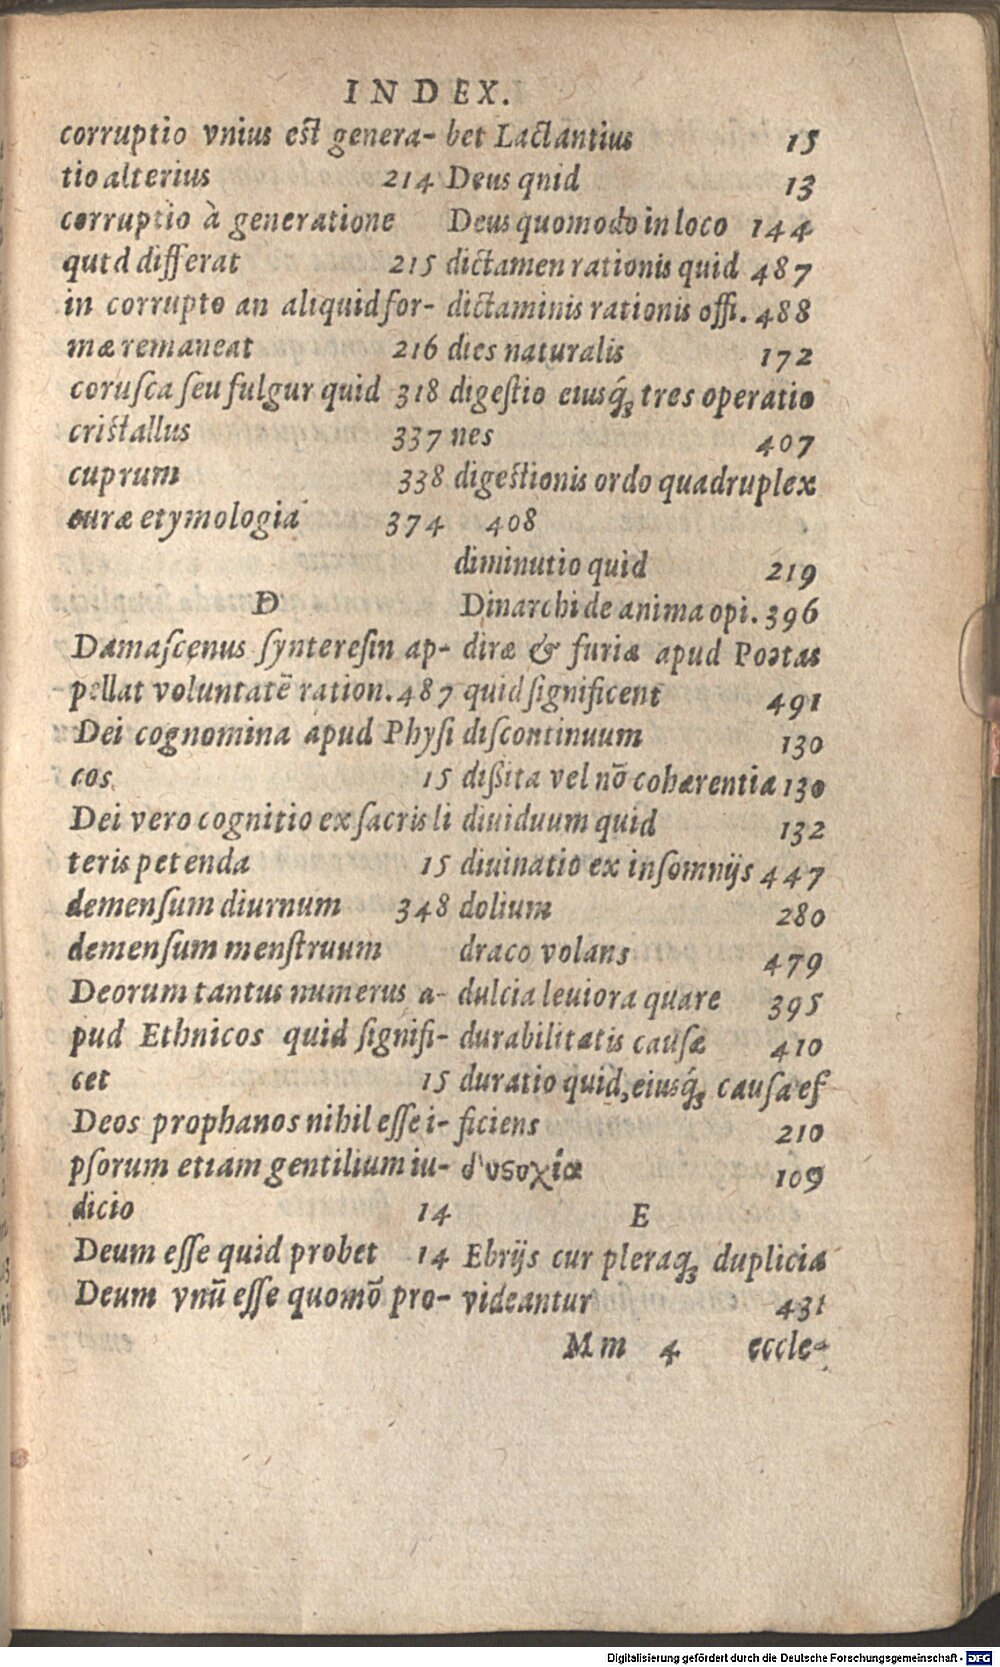 INDEX.
corruptio vnius est genera-
tio alterius 214
corruptio à generatione
quid differat 215
in corrupto an aliquid for-
mæ remaneat 216
coruſca ſeu fulgur quid 318
cristallus 337
cuprum 338
curæ etymologia 374
D
Damaſcenus ſyntereſin ap-
pellat voluntatē ration. 487
Dei cognomina apud Phyſi
cos 15
Dei vero cognitio ex ſacris li
teris petenda 15
demenſum diurnum 348
demenſum menſtruum
Deorum tantus numerus a-
pud Ethnicos quid ſignifi-
cet 15
Deos prophanos nihil eſſe i-
pſorum etiam gentilium iu-
dicio 14
Deum eſſe quid probet 14
Deum vnū eſſe quomō pro-
bet Lactantius 15
Deus qnid 13
Deus quomodo in loco 144
dictamen rationis quid 487
dictaminis rationis offi. 488
dies naturalis 172
digeſtio eiusq́ꝫ tres operatio
nes 407
digestionis ordo quadruplex
408
diminutio quid 219
Dinarchi de anima opi. 396
diræ & furiæ apud Poëtas
quid ſignificent 491
diſcontinuum 130
diſsita vel nō cohærentia 130
diuiduum quid 132
diuinatio ex inſomnijs 447
dolium 280
draco volans 479
dulcia leuiora quare 395
durabilitatis cauſæ 410
duratio quid, eiusq́ꝫ cauſa ef
ficiens 210
δυσυχία 109
E
Ebrijs cur pleraqꝫ duplicia
videantur 431
Mm 4 eccle-
Digitalisierung gefördert durch die Deutsche Forschungsgemeinschaft - DFG